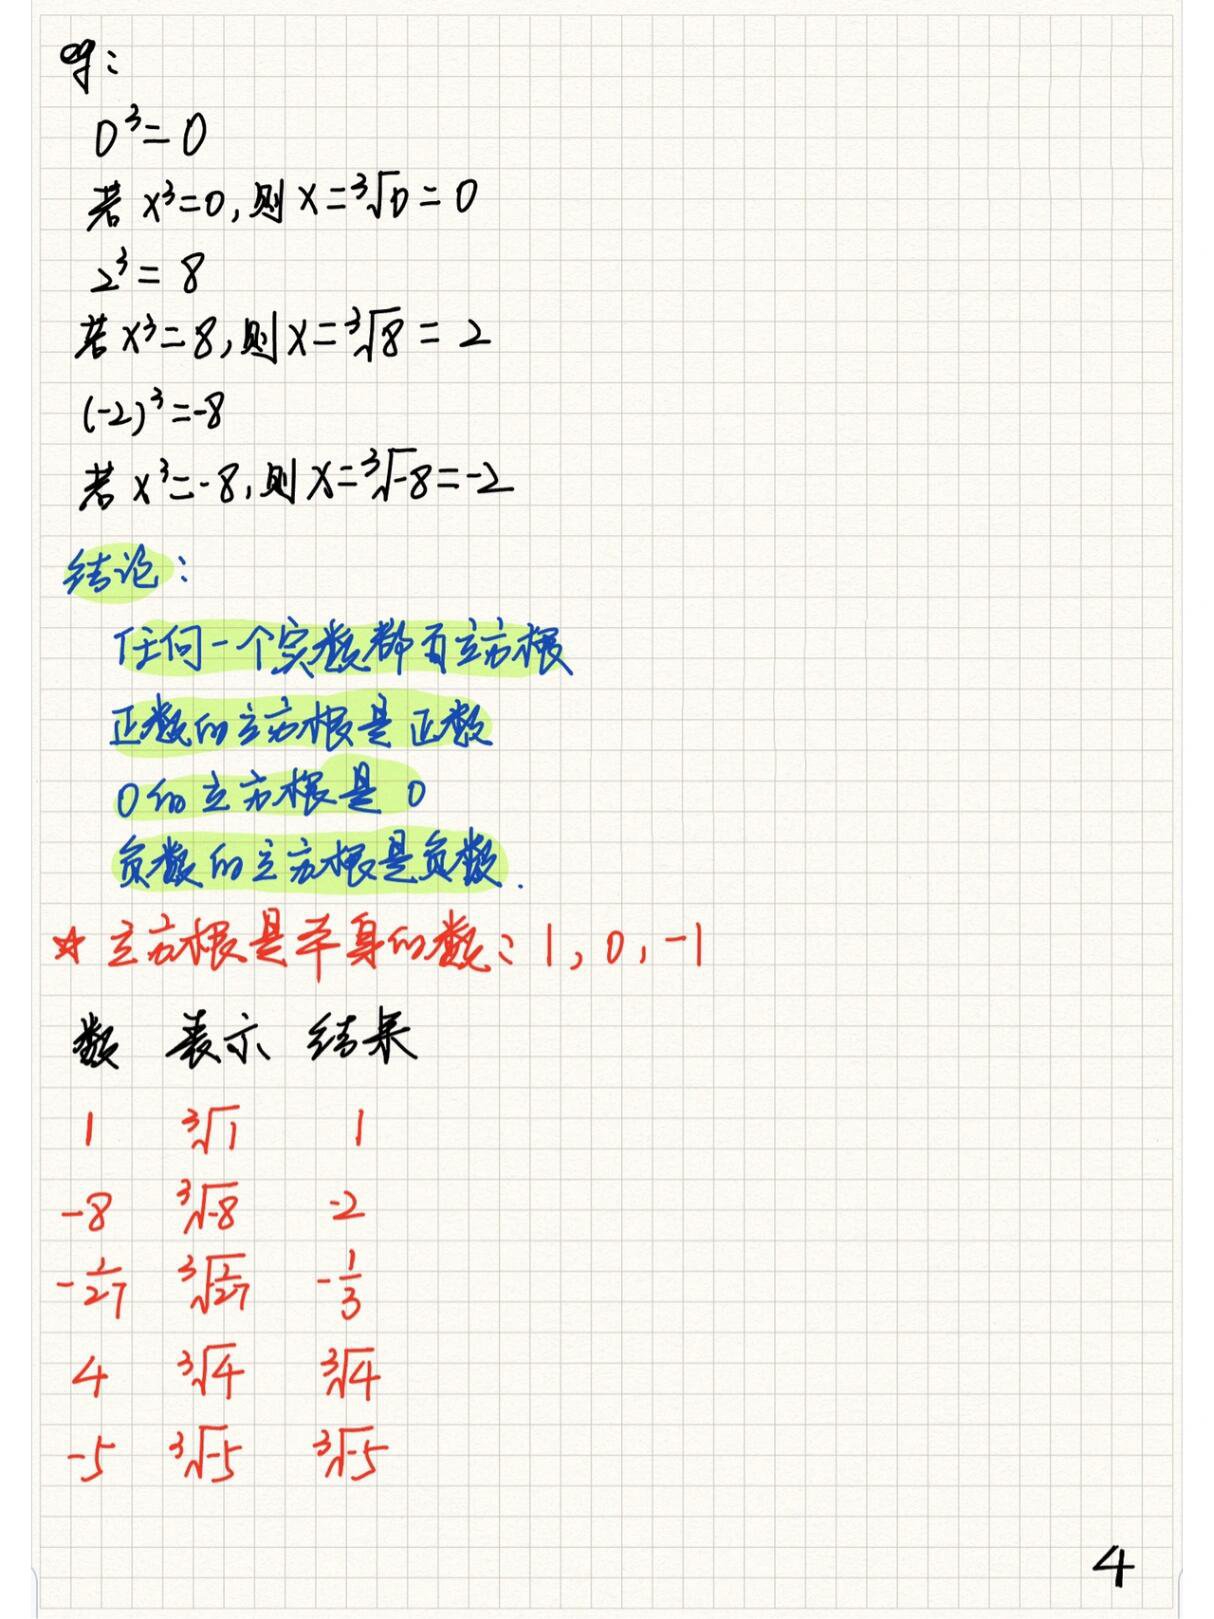 0³=0
若 x³=0,则 x=³√0=0
2³=8
若 x³=8,则 x=³√8=2
(-2)³=-8
若 x³=-8,则 x=³√-8=-2
结论:
任何一个实数都有立方根
正数的立方根是正数
0的立方根是0
负数的立方根是负数.
☆ 立方根是本身的数: 1, 0, -1
数 表示 结果
1 ³√1 1
-8 ³√-8 -2
-1/27 ³√1/27 -1/3
4 ³√4 ³√4
-5 ³√-5 ³√-5
4